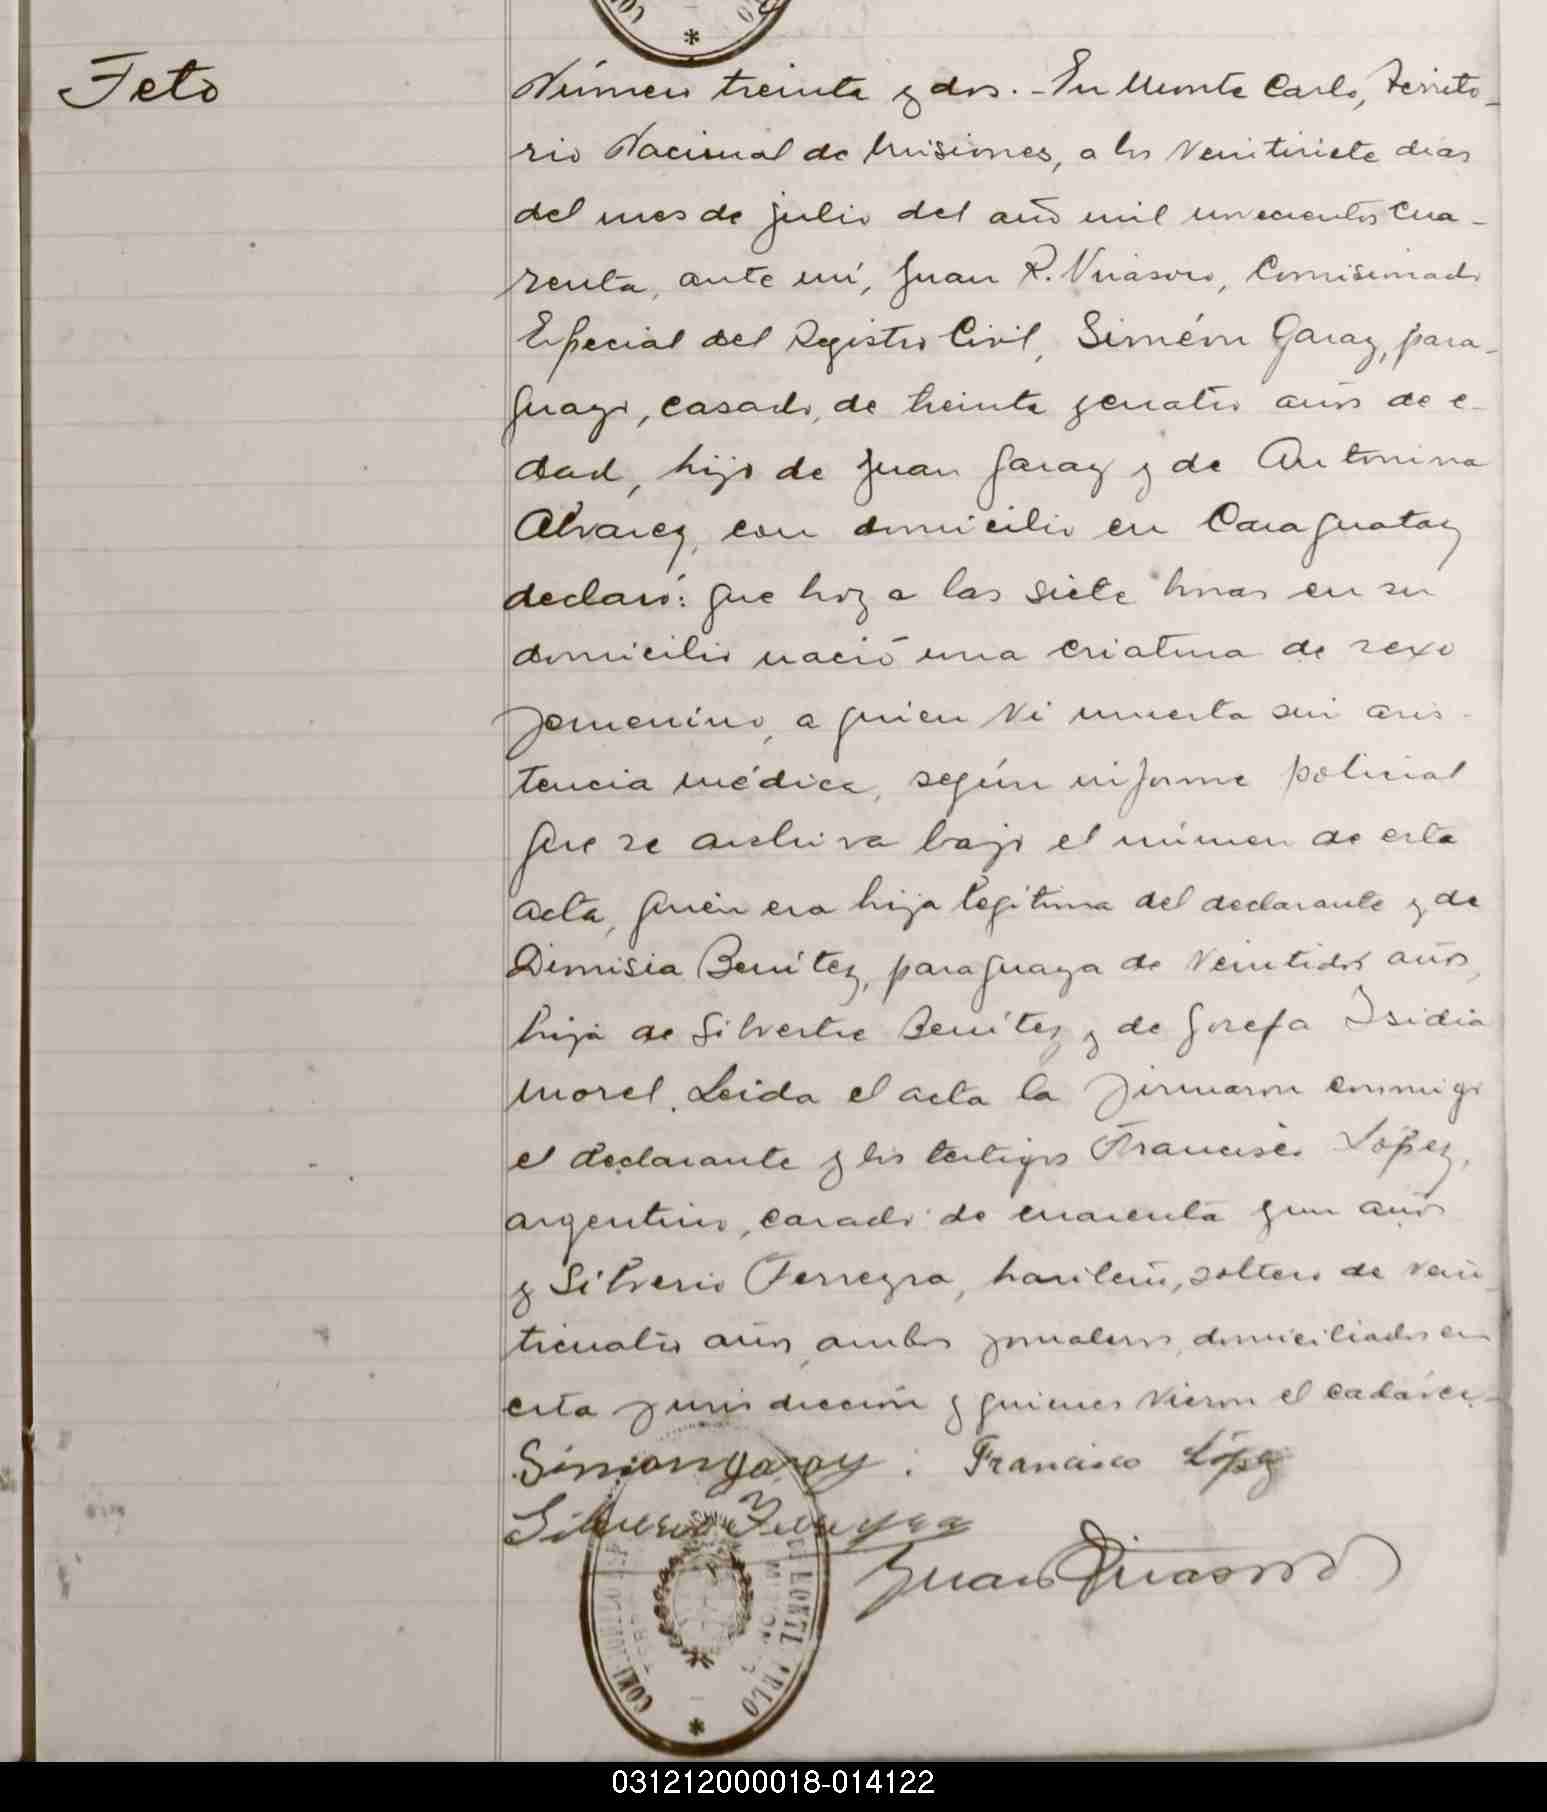 Feto
Número treinta y dos. - En Monte Carlo, Territo-
rio Nacional de Misiones, a los veintisiete dias
del mes de julio del año mil novecientos cua-
renta, ante mí, Juan R. Virasoro, Comisionado
Especial del Registro Civil, Simeón Garay, para-
guayo, casado, de treinta y cuatro años de e-
dad, hijo de Juan Garay y de Antonina
Alvarez, con domicilio en Caraguatay
declaró: que hoy a las siete horas en su
domicilio nació una criatura de sexo
femenino, a quien vi muerta sin asis-
tencia médica, según informe policial
que se archiva bajo el número de esta
acta, quien era hija legítima del declarante y de
Dionisia Benítez, paraguaya de veintidos años,
hija de Silvestre Benítez y de Josefa Isidia
Morel. Leida el acta la firmaron conmigo
el declarante y los testigos Francisco López,
argentino, casado de cuarenta y un años
y Silverio Ferreyra, brasileño, soltero de vein
ticuatro años, ambos jornaleros, domiciliados en
esta jurisdicción y quienes vieron el cadáver.-
Simon garay. Francisco López
Silverio Ferreyra
Juan Virasoro
031212000018-014122